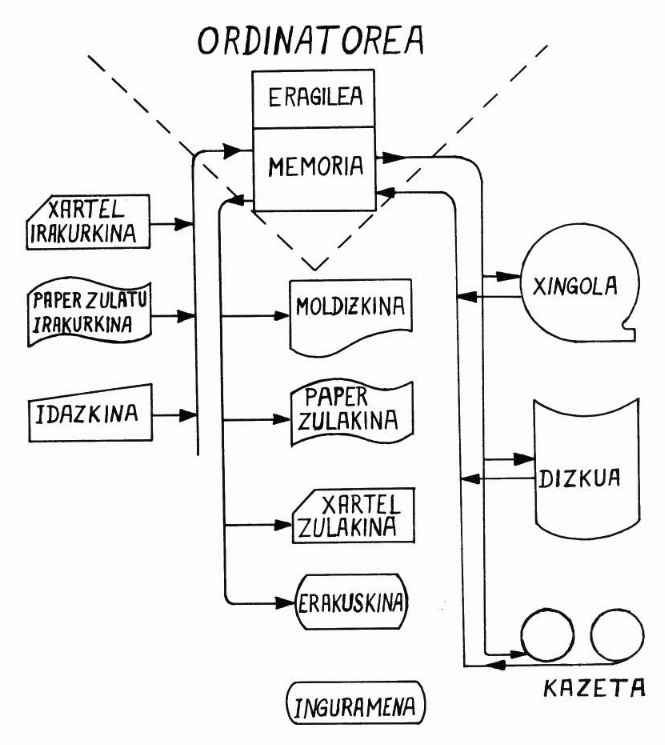 ORDINATOREA
ERAGILEA
MEMORIA
XARTEL
IRAKURKINA
PAPER ZULATU
IRAKURKINA
IDAZKINA
MOLDIZKINA
PAPER
ZULAKINA
XARTEL
ZULAKINA
ERAKUSKINA
INGURAMENA
XINGOLA
DIZKUA
KAZETA